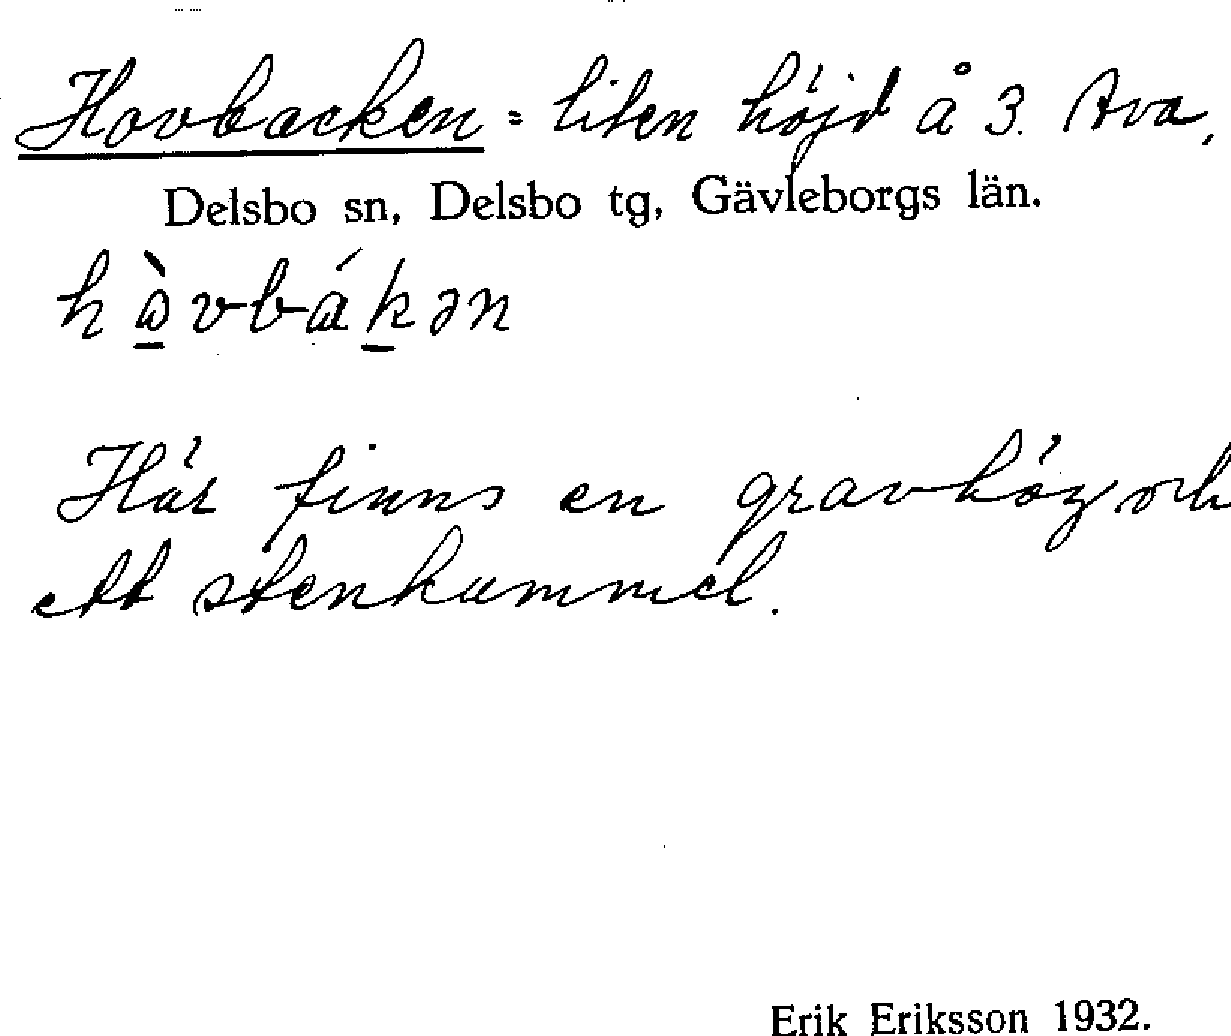 Hovbacken = liten höjd å 3 Ava,
Delsbo sn, Delsbo tg, Gävleborgs län.
hå̀vbákən
Här finns en gravhög och
ett stenkummel.
Erik Eriksson 1932.